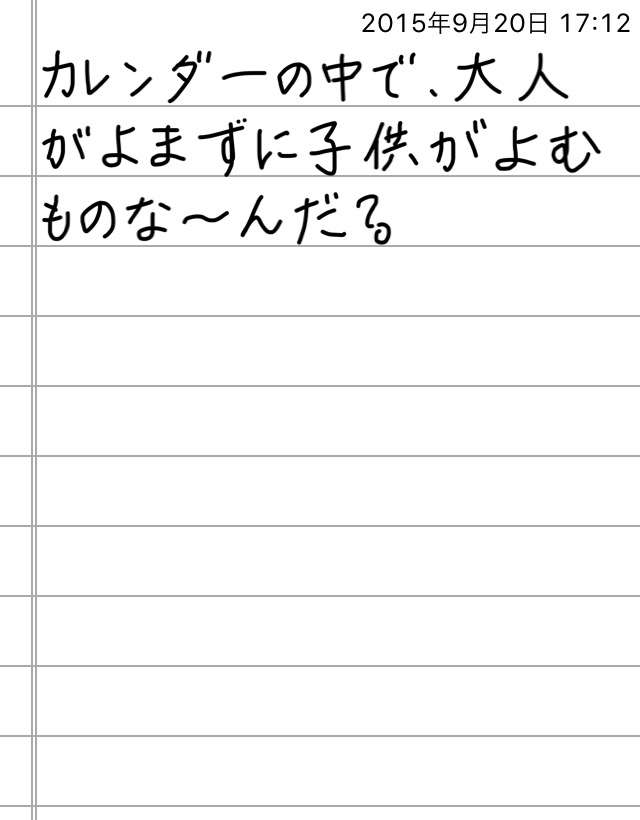 2015年9月20日 17:12
カレンダーの中で、大人
がよまずに子供がよむ
ものな〜んだ?